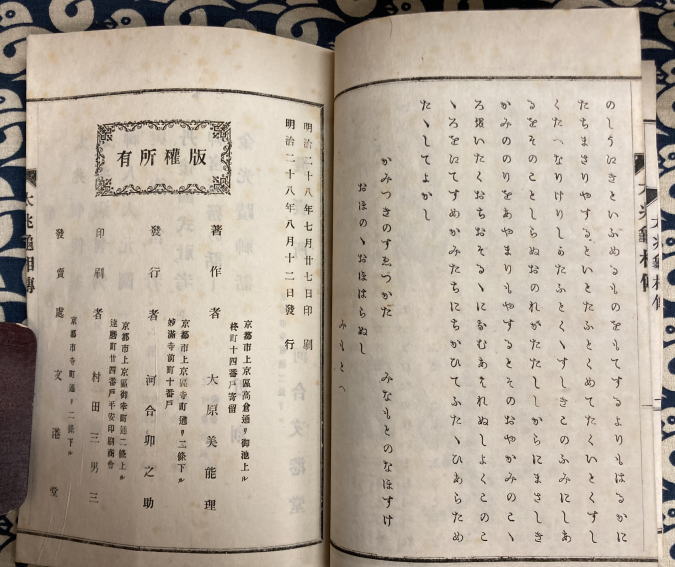 のしうにきといふめるものをもてするよりもはるかに
たちまさりやするといとたふとくめてたくいとくすし
くたへなりけりしあたふとくゝすしきこのふみにしあ
るをそのことしらぬおのれがたたししからにまさしき
かみののりをあやまりもやするとそのおやかみのこゝ
ろいたくおちおそるゝになむあはれぬしよくこのこ
ゝろをにてすめかみたちにちかひてふたゝひあらため
たゝしてよかし
かみつきのすゑつかた みなもとのなほすけ
おほのゝおほはらぬし
みもとへ
大兆龜相傳
明治二十八年七月廿七日印刷
明治二十八年八月十二日發行
版權所有
京都市上京區高倉通リ御池上ル
柊町十四番戸寄留
著作者 大原美能理
京都市上京區寺町通リ二條下ル
妙滿寺前町十番戸
發行者 河合卯之助
京都市上京區御幸町通二條上ル
達磨町廿四番戸平安印刷商會
印刷者 村田三男三
京都市寺町通リ二條下ル
發賣處 文港堂
大兆龜相傳